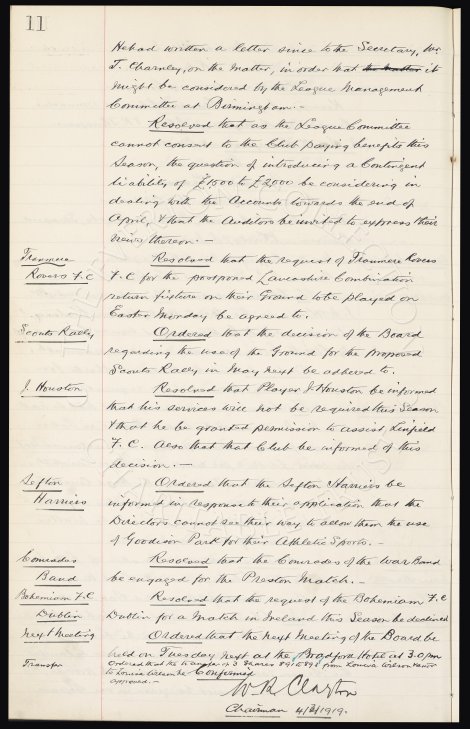 11
He had written a letter since to the Secretary, Mr
T. Charnley, on the matter, in order that the matter it
might be considered by the League Management
Committee at Birmingham. -
Resolved that as the League Committee
cannot consent to the Club paying benefits this
Season, the question of introducing a Contingent
liability of £1500 to £2000 be considering in
dealing with the Accounts towards the end of
April, & that the Auditors be invited to express their
views thereon. -
Tranmere
Rovers F.C
Resolved that the request of Tranmere Rovers
F.C for the postponed Lancashire Combination
return fixture on their Ground to be played on
Easter Monday be agreed to.
Scouts Rally
Ordered that the decision of the Board
regarding the use of the Ground for the proposed
Scouts Rally in May next be adhered to.
J. Houston
Resolved that Player J Houston be informed
that his services will not be required this Season
& that he be granted permission to assist Linfield
F.C. Also that that Club be informed of this
decision. -
Sefton
Harriers
Ordered that the Sefton Harriers be
informed in response to their application that the
Directors cannot see their way to allow them the use
of Goodison Park for their Athletic Sports. -
Comrades
Band
Resolved that the Comrades of the War Band
be engaged for the Preston Match. -
Bohemian F.C
Dublin
Resolved that the request of the Bohemian F.C
Dublin for a Match in Ireland this Season be declined
Next Meeting
Ordered that the next Meeting of the Board be
held on Tuesday next at the Bradford Hotel at 3.0 pm
Transfer
Ordered that the transfer of 3 Shares from Louisa Wilson
to Louisa be
approved. -
Confirmed
W. R. Clayton
Chairman 4/3/1919.